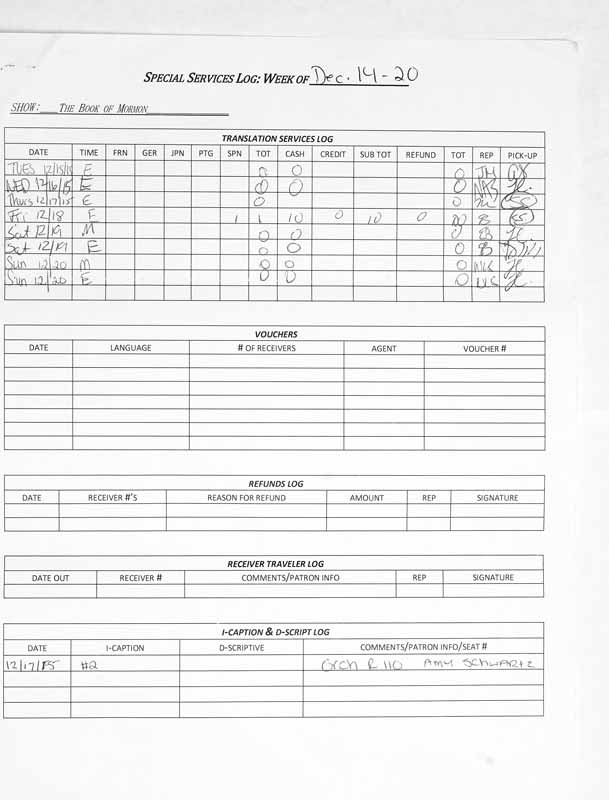 SPECIAL SERVICES LOG: WEEK OF Dec. 14-20
SHOW: THE BOOK OF MORMON
TRANSLATION SERVICES LOG
DATE TIME FRN GER JPN PTG SPN TOT CASH CREDIT SUB TOT REFUND TOT REP PICK-UP
TUES 12/15/15 E 0 0 0 JM
WED 12/16/15 E 0 0 0 NAS
Thurs 12/17/15 E 0 0
Fri 12/18 E 1 1 10 0 10 0 10 B
Sat 12/19 M 0 0 0 B
Sat 12/19 E 0 0 0 B
Sun 12/20 M 0 0 0
Sun 12/20 E 0 0 0
VOUCHERS
DATE LANGUAGE # OF RECEIVERS AGENT VOUCHER #
REFUNDS LOG
DATE RECEIVER #'S REASON FOR REFUND AMOUNT REP SIGNATURE
RECEIVER TRAVELER LOG
DATE OUT RECEIVER # COMMENTS/PATRON INFO REP SIGNATURE
I-CAPTION & D-SCRIPT LOG
DATE I-CAPTION D-SCRIPTIVE COMMENTS/PATRON INFO/SEAT #
12/17/15 #2 Orch R 110 Amy Schwartz